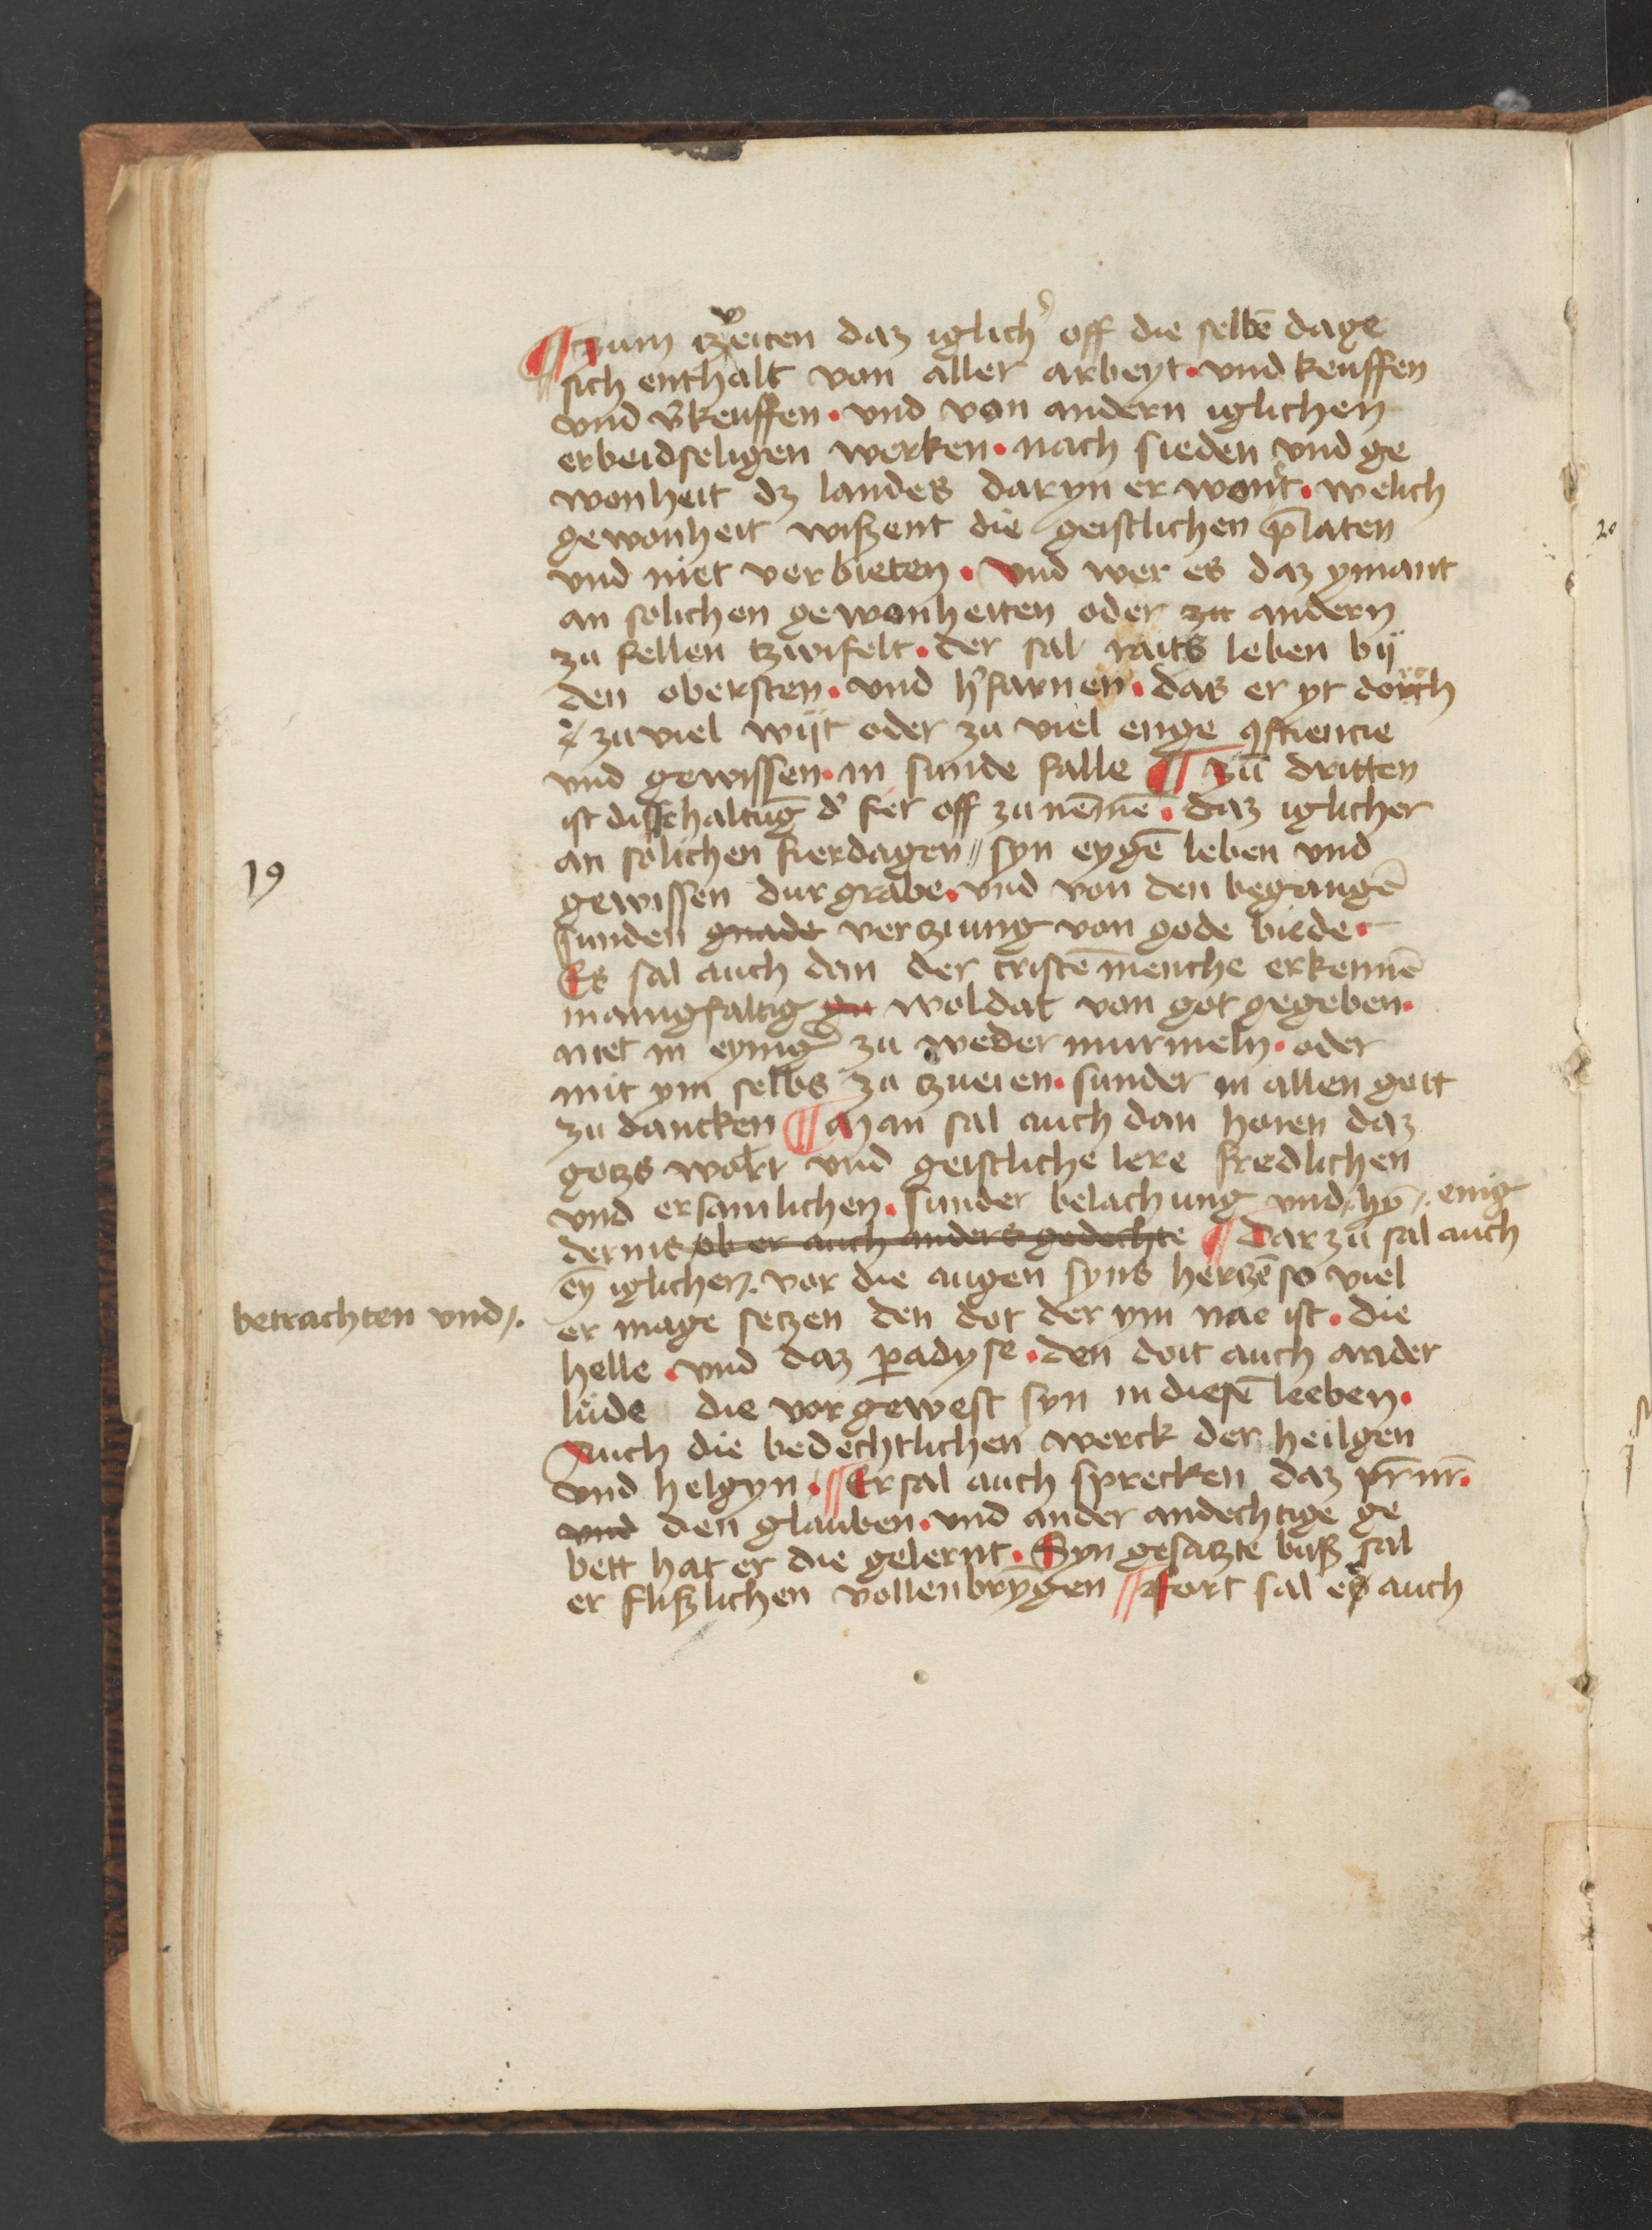 ¶ Czum tzveiten daz iglich' off die selbē dage
sich enthalt von aller arbeyt · vnd keuffen
vnd v̄keuffen · vnd von andern iglichen
erbeidseligen werken · nach sieden vnd ge
wonheit dz landes daryn er wont · welich
gewonheit wißent die geistlichen p̄laten
vnd niet verbieten · Vnd wer es daz ymant
an solichen gewonheiten oder zu andern
zu fellen tzwifelt · der sal raits leben bij
den obersten · vnd h'farnen · das er yt dorch
zuviel wijt oder zu viel enge ꝯsciencie
vnd gewissen · in sunde falle ¶ Zū dritten
ist disse haltūg d' fier off zu nēmē · daz iglicher
19
an solichen fierdagen // syn eygē leben vnd
gewissen durgrabe · vnd von den begangē
sunden gnade verziung von gode biede ·
Es sal auch dan der cristē menche erkennē
manigfaltig gu woldat von got gegeben ·
niet in eynig' zu weder murmeln · oder
mit ym selbs zu zueien · sunder in allen gott
zu dancken ¶ Man sal auch dan horen daz
gotzs wort vnd geistliche lere fredlichen
vnd ersamlichen · sunder belachung vnd hȳ enig
dernis ob er auch anders gedechte ¶ Dar zu sal auch
eȳ iglicher /. vor die augen syns hertzē so viel
betrachten vnd /.
er mage setzen den dot der ym nae ist · die
helle · vnd daz ꝑadyse · den doit auch ander
lude die vor gewest syn in diesē leeben ·
Auch die bedechtlichen werck der heilgen
vnd helgyn · ¶ Er sal auch sprecken daz pr̄ nr̄ ·
vnd den glauben · vnd ander andechtige ge
bett hat er die gelernt · Syn gesatzte buß sal
er flißlichen vollenbrȳgen ¶ Fort sal er auch
20